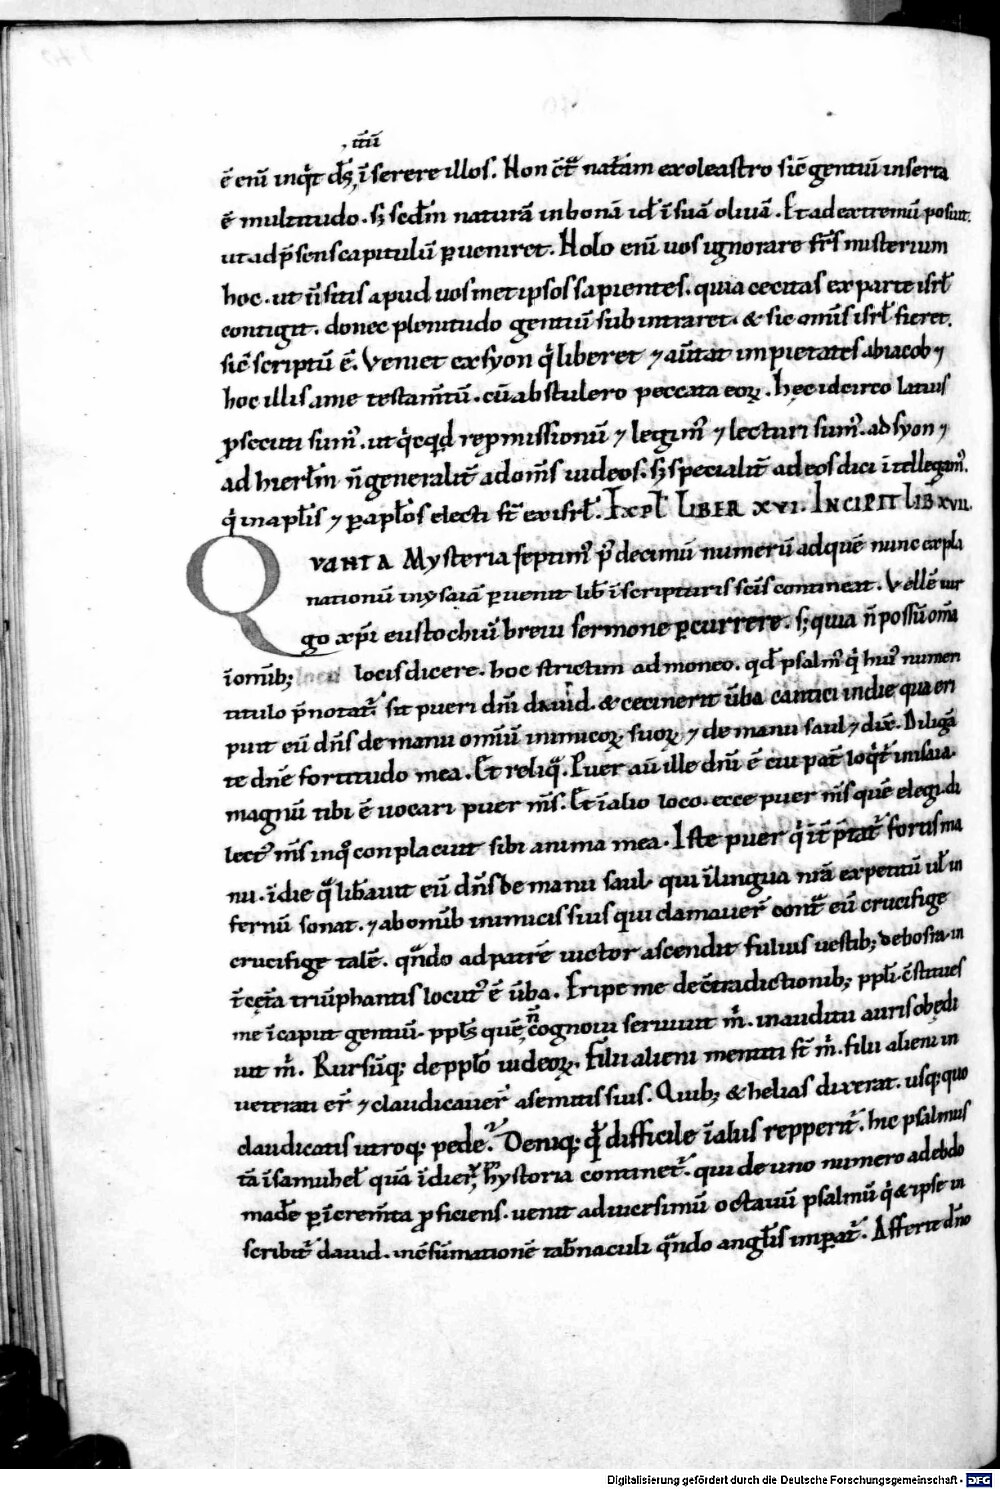 itũ
ẽ enĩ inqͥt dˢ, ĩserere illos. Non cͭͣ natãm exoleastro sic̃ gentiũ inserta
ẽ multitudo. sꝫ scdm̃ naturã in bonã id ẽ ĩ suã oliuã. Et ad extremũ posuit.
ut ad p̃sens capitulũ ꝑueniret. Nolo enĩ uos ignorare fr̃s misterium
hoc. ut ñ sitis apud uosmet ipsos sapientes. quia cecitas ex parte isrl̃
contigit. donec plenitudo gentiũ subintraret. & sic omĩs isrl̃ fieret.
sic̃ scriptũ ẽ. Veniet ex syon qͥ liberet ⁊ au̾tat impietates ab iacob ⁊
hoc illis a me testam̃tũ. cũ abstulero peccata eoꝝ. hęc idcirco latius
ꝓsecuti sumꝰ. ut qͥcqͥd repmissionũ ⁊ legimꝰ ⁊ lecturi sumꝰ. ad syon ⁊
ad hierl̃m ñ generalit̃ ad om̃s iudeos. sꝫ specialit̃ ad eos dici ĩtellegam̾.
qͥ in apl̃is ⁊ ꝑ apl̃os electi st̃ ex isrl̃. Expl̃ Liber XVI. Incipit Lib XVII.
Qvanta Mysteria septimꝰ p̾ decimũ numerũ ad quẽ nunc expla
nationũ in ysaiã ꝑuenit lib̾ ĩ scripturis scĩs contineat. Vellẽ uir
go xp̃i eustochiũ breui sermone ꝑcurrere. sꝫ quia ñ possũ om̃a
ĩ omĩbꝫ locis dicere. hoc strictim admoneo. qd̾ psalmꝰ qͥ huiꝰ numeri
titulo p̃notat̾ sit pueri dnĩ dauid. & cecinerit ũba cantici in die qua eri
puit eũ dñs de manu omĩũ inimicoꝝ suoꝝ ⁊ de manu saul ⁊ dix̾. Diligã
te dnẽ fortitudo mea. Et reliq̃. Puer aũ ille dnĩ ẽ cui pat̃ loqͥt̾ in isaia.
magnũ tibi ẽ uocari puer m̃s. Et ĩ alio loco. ecce puer m̃s quẽ elegi. di
lectꝰ m̃s in quo conplacuit sibi anima mea. Iste puer qͥ it̃p̃tat̾ fortis ma
nu. ĩ die qͣ lib̾auit eũ dñs de manu saul. qui ĩ lingua nr̃a expetitũ ul̃ in
fernũ sonat. ⁊ ab omĩb inimicis suis qui clamauer̃ contͣ eũ crucifige
crucifige talẽ. qñdo ad patrẽ uictor ascendit fuluis uestibꝫ de bosra. in
ĩ cęta triũphantis locutꝰ ẽ ũba. Eripe me de c̃tradictionibꝫ ppl̃i. c̃stitues
me ĩ caput gentiũ. ppl̃s quẽ ñ cognoui seruiuit mͥ. in auditu auris obędi
uit mͥ. Rursũqꝫ de ppl̃o iudeoꝝ. Filii alieni mentiti st̃ mͥ. filii alieni in
ueterati er̃ ⁊ claudicauer̃ a semitis suis. Quibꝫ & helias dixerat. usqꝫ quo
claudicatis utroqꝫ pede? Deniqꝫ qd̾ difficile ĩ aliis repperit̾. hic psalmus
tã ĩ samuhel̾ quã ĩ dier̾ hystoria continet̾. qui de uno numero ad ebdo
made ꝑ ĩcrem̃ta ꝓficiens. uenit ad uicesimũ octauũ psalmũ qͥ & ipse in
scribit̾ dauid. in c̃sũmationẽ tab̾naculi qñdo angl̃is impat̾. Afferte dño